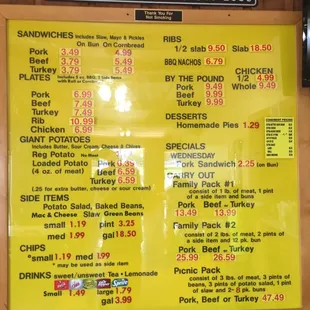 Thank You For
Not Smoking
SANDWICHES Includes Slaw, Mayo & Pickles
On Bun On Cornbread
Pork 3.49 4.99
Beef 3.79 5.49
Turkey 3.79 5.49
PLATES
Pork 6.99
Beef 7.49
Turkey 7.49
Rib 10.99
Chicken 6.99
GIANT POTATOES
Includes Butter, Sour Cream, Cheese & Chives
Reg Potato No Meat
Loaded Potato Pork
(4 oz. of meat) Beef 6.59
Turkey 6.59
(.25 for extra butter, cheese or sour cream)
SIDE ITEMS
Potato Salad, Baked Beans,
Mac & Cheese Slaw Green Beans
small 1.19 pint 3.25
med 1.99 gal 18.50
CHIPS
small 1.19 med 1.99
DRINKS sweet/unsweet Tea • Lemonade
Sprite
Small 1.49 large 1.79
gal 3.99
RIBS
1/2 slab 9.50 Slab 18.50
BBQ NACHOS 6.79
CHICKEN
1/2 4.99
Whole 9.49
BY THE POUND
Pork 8.99
Beef 9.99
Turkey 9.99
DESSERTS
Homemade Pies 1.29
SPECIALS
WEDNESDAY
Pork Sandwich 2.25 (on Bun)
CARRY OUT
Family Pack #1
consists of 1 lb. of meat, 1 pint
of a side item and buns
Pork Beef or Turkey
13.49 13.99
Family Pack #2
consist of 2 lbs. of meat, 2 pints
of a side item and 12 pk. bun
Pork Beef or Turkey
25.99 26.59
Picnic Pack
consist of 3 lbs. of meat, 3 pints of
beans, 3 pints of potato salad, 1 pint
of slaw and 2- 8 pk. buns
Pork, Beef or Turkey 47.49